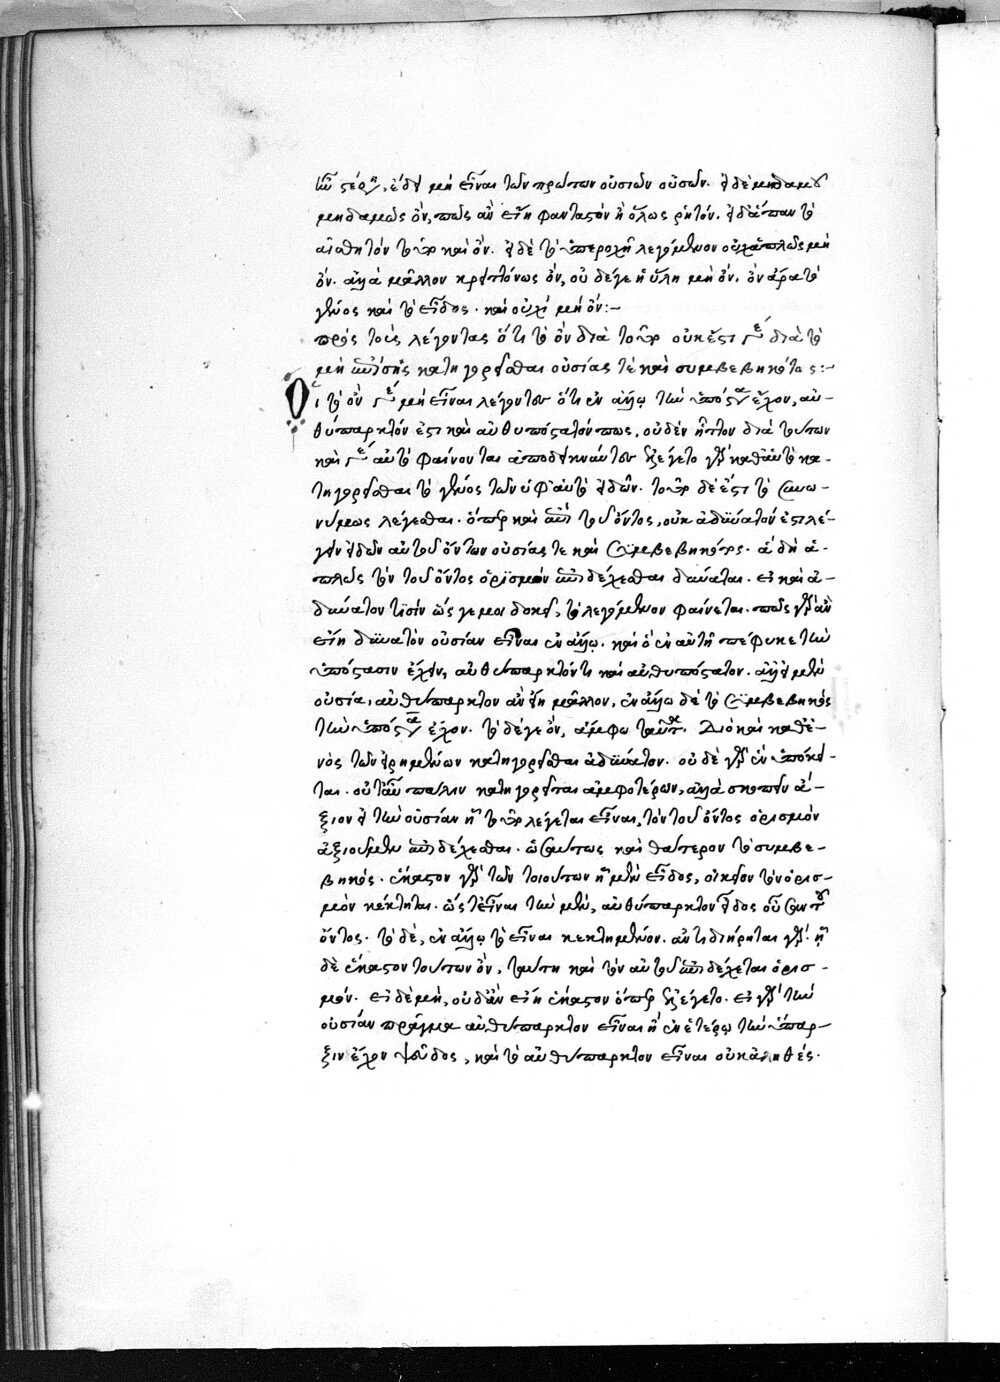 μὴ εἶναι τῶν πρώτων οὐσιῶν οὐσῶν. εἰ δὲ μηδαμοῦ
μηδαμῶς ὂν, πῶς ἂν εἴη φανταστὸν ἢ ὅλως ῥητόν. εἰ δ' ἅπαν τὸ
αἰσθητὸν τοῦτο καὶ ὄν. εἰ δὲ τὸ ὑπεροχῇ λεγόμενον οὐχ ἁπλῶς μὴ
ὄν. ἀλλὰ μᾶλλον κρειττόνως ὄν, οὐδέ γε ἡ ὕλη μὴ ὄν. ὂν ἄρα τὸ
γένος καὶ τὸ εἶδος. καὶ οὐχὶ μὴ ὄν:-
πρὸς τοὺς λέγοντας ὅτι τὸ ὂν διὰ τοῦτο οὐκ ἔστι γένος διὰ τὸ
μὴ ἐπίσης κατηγορεῖσθαι οὐσίας τὲ καὶ συμβεβηκότος:-
Οἱ τὸ ὂν γένος μὴ εἶναι λέγοντες ὅτι ἐν ἄλλῳ τὴν ὑπόστασιν ἔχον, αὐ-
θύπαρκτόν ἐστι καὶ αὐθυπόστατόν πως, οὐδὲν ἧττον διὰ τούτων
καὶ γένος αὐτὸ φαίνονται ἀποδεικνύντες. ἐλέγετο γὰρ καθ' αὑτὸ κα-
τηγορεῖσθαι τὸ γένος τῶν ὑφ' αὑτὸ εἰδῶν. τοῦτο δέ ἐστι τὸ συνω-
νύμως λέγεσθαι. ὅπερ καὶ ἐπὶ τοῦ ὄντος, οὐκ ἀδύνατόν ἐστι λέ-
γειν εἰδῶν αὐτοῦ ὄντων οὐσίας τε καὶ συμβεβηκότος. ἃ δὴ ἁ-
πλῶς τὸν τοῦ ὄντος ὁρισμὸν ἐπιδέχεσθαι δύναται. εἰ καὶ ἀ-
δύνατον τισὶν ὥς γε μοι δοκεῖ, τὸ λεγόμενον φαίνεται. πῶς γὰρ ἂν
εἴη δυνατὸν οὐσίαν εἶναι ἐν ἄλλῳ. καὶ ὃ ἐν αὐτῇ πέφυκε τὴν
ὑπόστασιν ἔχειν, αὐθύπαρκτόν τι καὶ αὐθυπόστατον. ἀλλ' εἰ μὲν
οὐσία, αὐθύπαρκτον ἂν εἴη μᾶλλον, ἐν ἄλλῳ δὲ τὸ συμβεβηκὸς
τὴν ὑπόστασιν ἔχον. τὸ δέ γε ὂν, ἄμφω ταῦτα. Διὸ καὶ καθ' ἑ-
νὸς τῶν εἰρημένων κατηγορεῖσθαι ἀδύνατον. οὐδὲ γὰρ ἐν ὑπόκει-
ται. οὐ ταὐτὰ πάλιν κατηγορεῖται ἀμφοτέρων, ἀλλὰ σκοπεῖν ἄ-
ξιον εἰ τὴν οὐσίαν ᾗ τοῦτο λέγεται εἶναι, τὸν τοῦ ὄντος ὁρισμὸν
ἀξιοῦμεν ἐπιδέχεσθαι. ὡσαύτως καὶ θάτερον τὸ συμβε-
βηκός. ἕκαστον γὰρ τῶν τοιούτων ᾗ μὲν εἶδος, οἰκεῖον τὸν ὁρισ-
μὸν κέκτηται. ὥς τε εἶναι τὴν μὲν, αὐθύπαρκτον εἶδος οὖσαν τοῦ
ὄντος. τὸ δὲ, ἐν ἄλλῳ τὸ εἶναι κεκτημένον. ἀντιδιῄρηται γάρ. ᾗ
δὲ ἕκαστον τούτων ὂν, ταύτῃ καὶ τὸν αὐτοῦ ἐπιδέχεται ὁρισ-
μόν. εἰ δὲ μὴ, οὐδ' ἂν εἴη ἕκαστον ὅπερ ἐλέγετο. εἰ γὰρ τὴν
οὐσίαν πρᾶγμα αὐθύπαρκτον εἶναι ἢ ἐν ἑτέρῳ τὴν ὕπαρ-
ξιν ἔχον ψεῦδος, καὶ τὸ αὐθύπαρκτον εἶναι οὐκ ἀληθές.